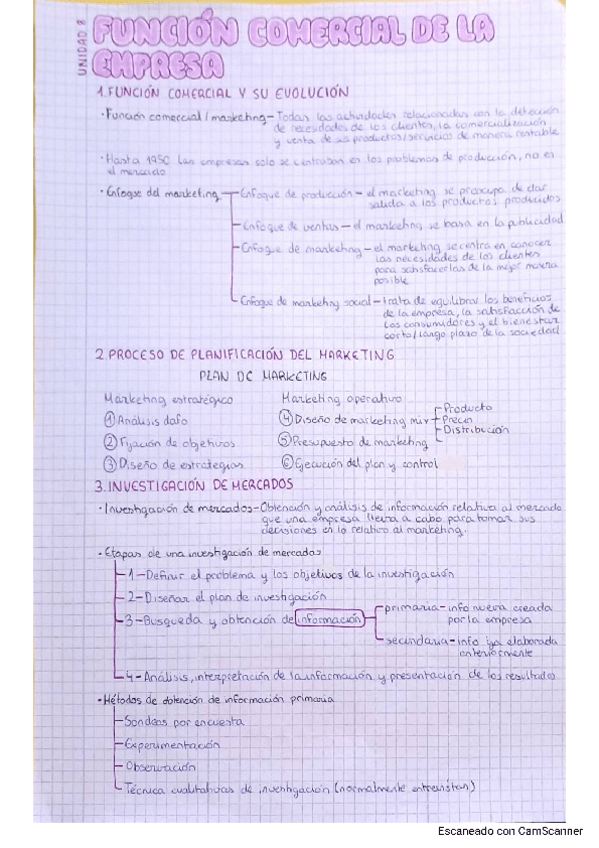 UNIDAD 8
FUNCIÓN COMERCIAL DE LA
EMPRESA
1. FUNCIÓN COMERCIAL Y SU EVOLUCIÓN
· Función comercial / marketing - Todas las actividades relacionadas con la detección
de necesidades de los clientes, la comercialización
y venta de sus productos/servicios de manera rentable
· Hasta 1950 las empresas solo se centraban en los problemas de producción, no en
el mercado
· Enfoque del marketing - Enfoque de producción - el marketing se preocupa de dar
salida a los productos producidos
- Enfoque de ventas - el marketing se basa en la publicidad
- Enfoque de marketing - el marketing se centra en conocer
las necesidades de los clientes
para satisfacerlas de la mejor manera
posible
Enfoque de marketing social - trata de equilibrar los beneficios
de la empresa, la satisfacción de
los consumidores y el bienestar
corto/largo plazo de la sociedad
2 PROCESO DE PLANIFICACIÓN DEL MARKETING
PLAN DE MARKETING
Marketing estratégico Marketing operativo
① Análisis dafo ④ Diseño de marketing mix - Producto
Precio
Distribución
② Fijación de objetivos ⑤ Presupuesto de marketing
③ Diseño de estrategias ⑥ Ejecución del plan y control
3. INVESTIGACIÓN DE MERCADOS
· Investigación de mercados - Obtención y análisis de información relativa al mercado
que una empresa lleva a cabo para tomar sus
decisiones en lo relativo al marketing.
· Etapas de una investigación de mercados
1 - Definir el problema y los objetivos de la investigación
2 - Diseñar el plan de investigación
3 - Busqueda y obtención de información - primaria - info nueva creada
por la empresa
secundaria - info ya elaborada
anteriormente
4 - Análisis, interpretación de la información y presentación de los resultados
· Métodos de obtención de información primaria
- Sondeos por encuesta
- Experimentación
- Observación
Técnica cualitativas de investigación (normalmente entrevistan)
Escaneado con CamScanner